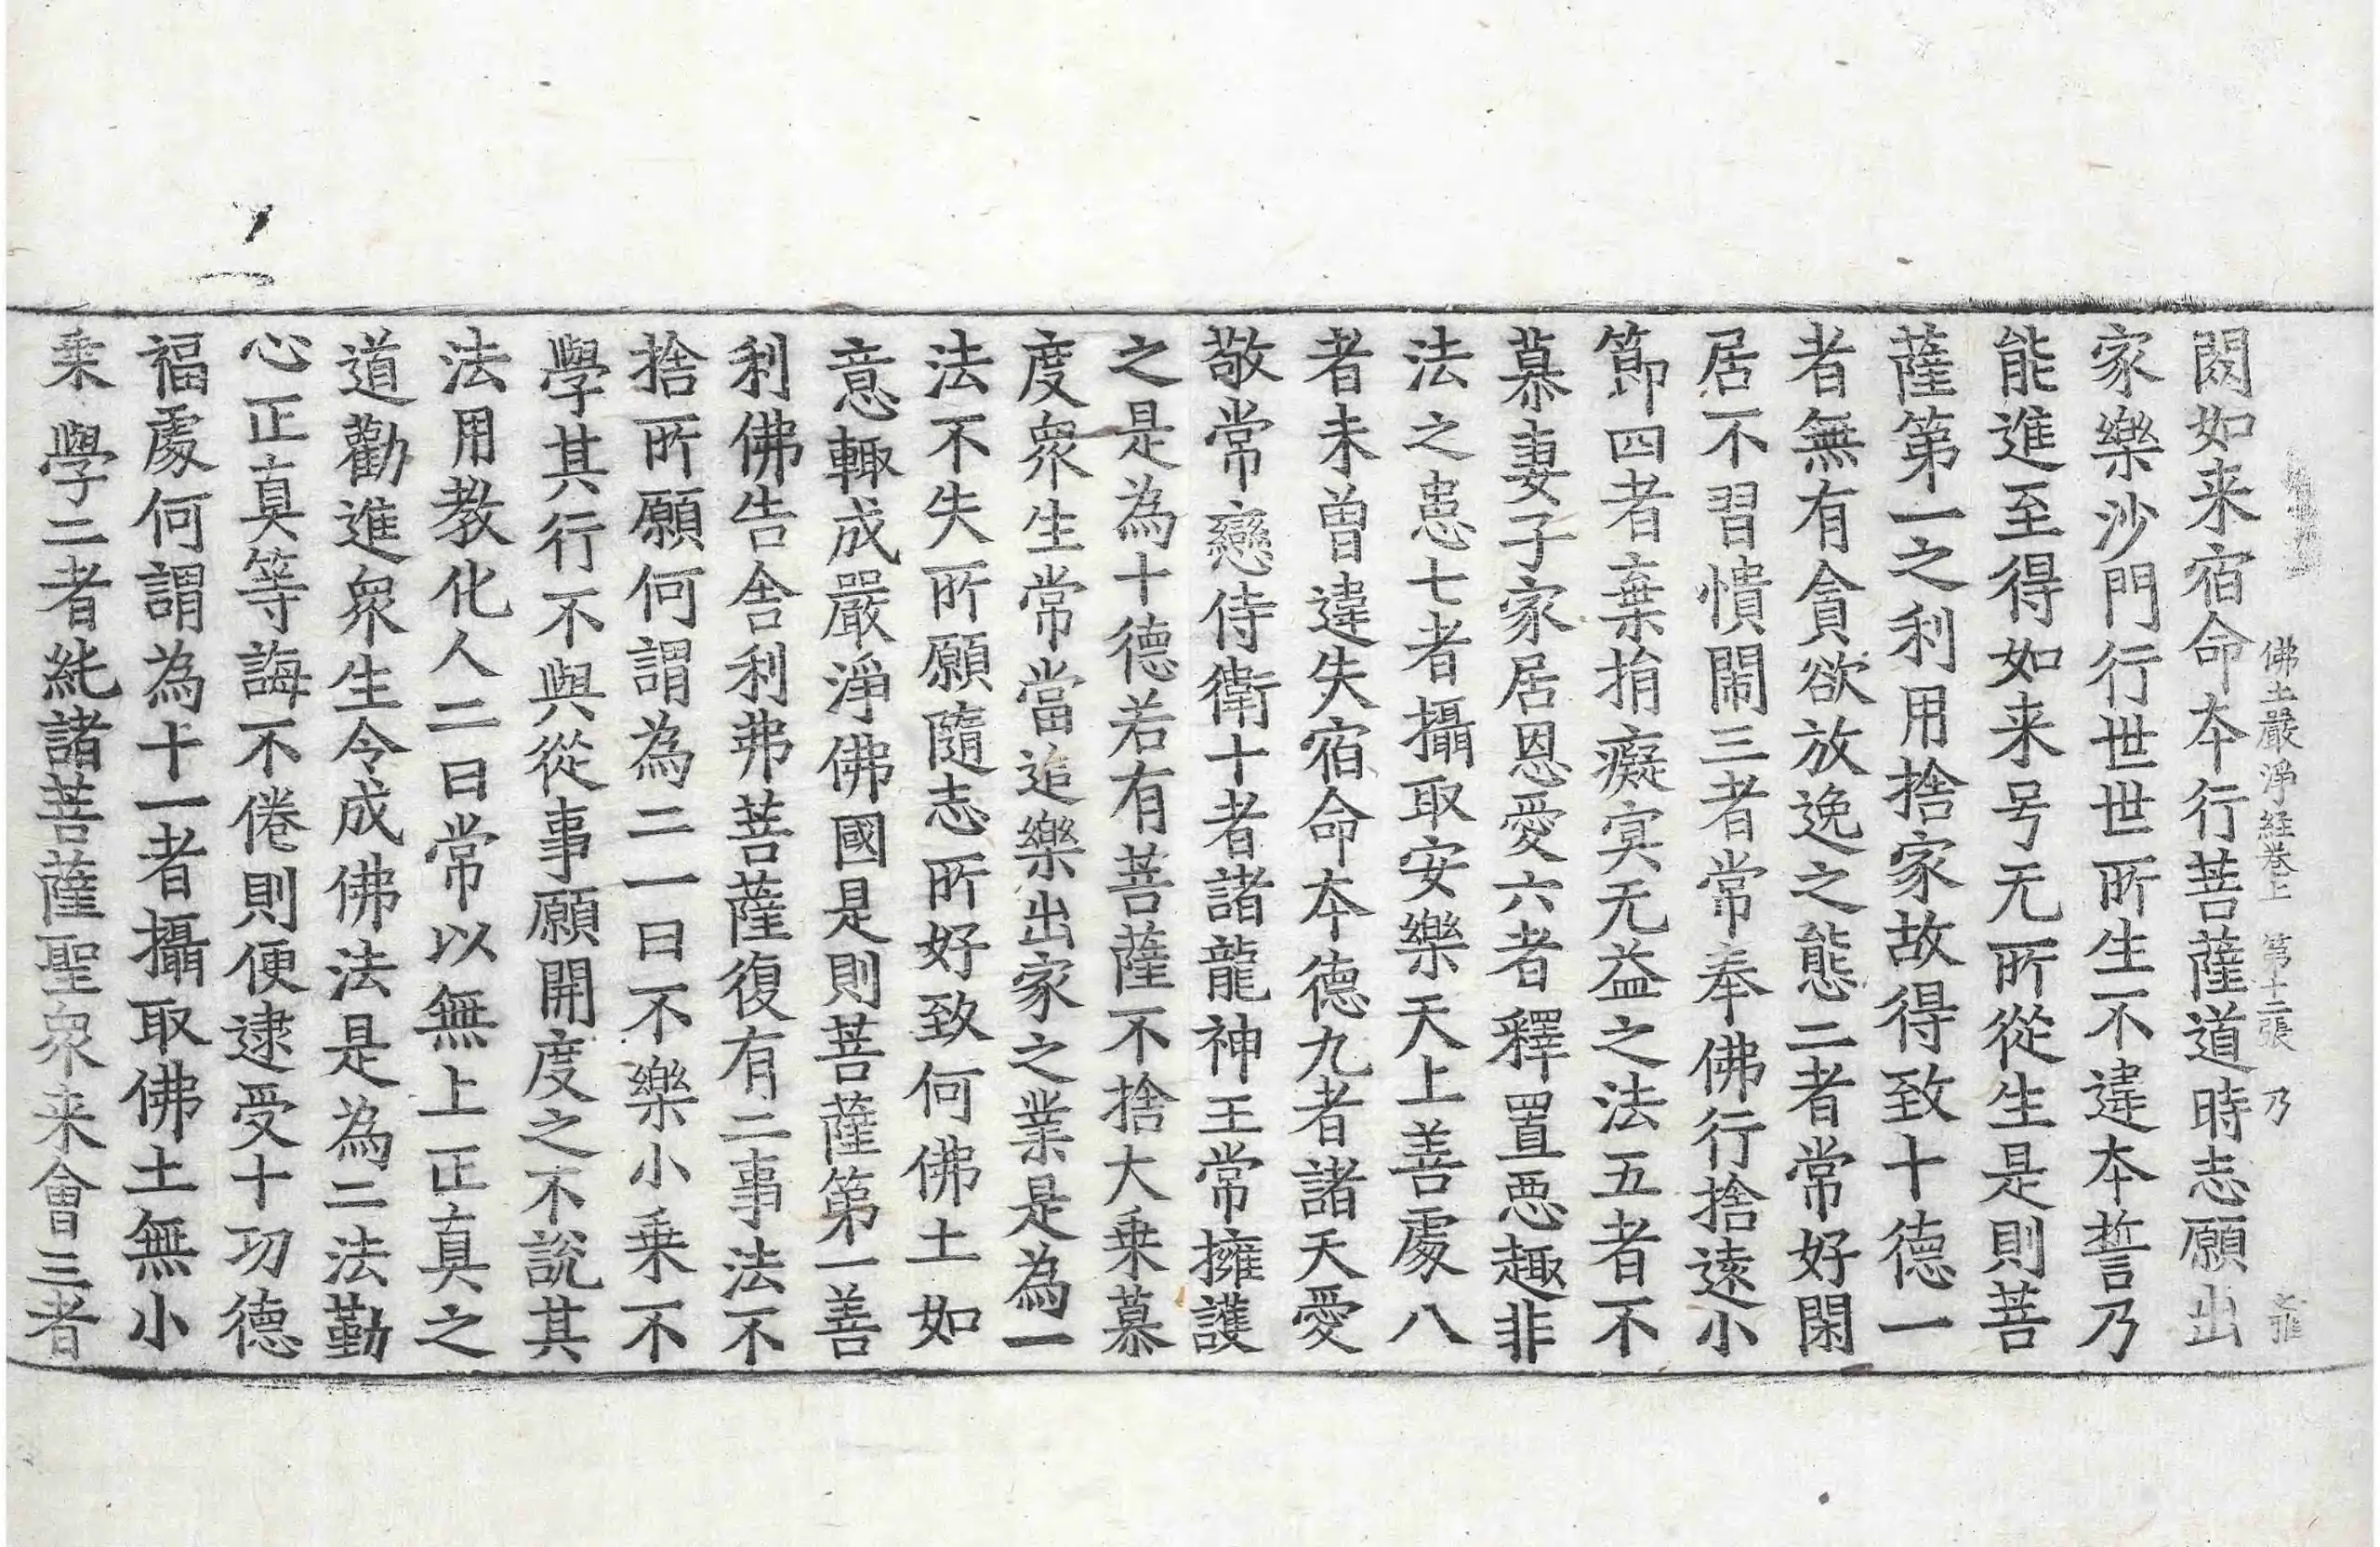 佛土嚴淨經卷上 第十二張 乃
閦如来宿命本行菩薩道時志願出
家樂沙門行世世所生不違本誓乃
能進至得如来号无所從生是則菩
薩第一之利用捨家故得致十德一
者無有貪欲放逸之態二者常好閑
居不習憒閙三者常奉佛行捨遠小
節四者棄捐癡冥无益之法五者不
慕妻子家居恩愛六者釋置惡趣非
法之患七者攝取安樂天上善處八
者未曾違失宿命本德九者諸天愛
敬常戀侍衛十者諸龍神王常擁護
之是為十德若有菩薩不捨大乗慕
度衆生常當造樂出家之業是為一
法不失所願隨志所好致何佛土如
意輙成嚴淨佛國是則菩薩第一善
利佛告舎利弗菩薩復有二事法不
捨所願何謂為二一曰不樂小乗不
學其行不與從事願開度之不說其
法用教化人二曰常以無上正真之
道勸進衆生令成佛法是為二法勤
心正真等誨不倦則便逮受十功德
福處何謂為十一者攝取佛土無小
乗學二者純諸菩薩聖衆来會三者